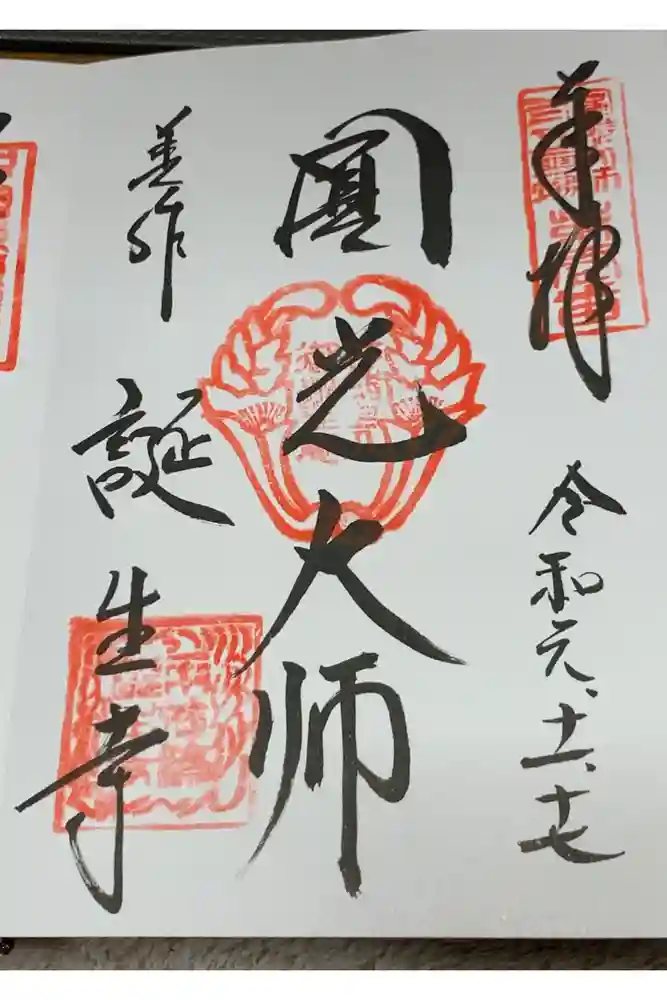 奉拝
令和元、十一、十七
圓光大師
美作
誕生寺